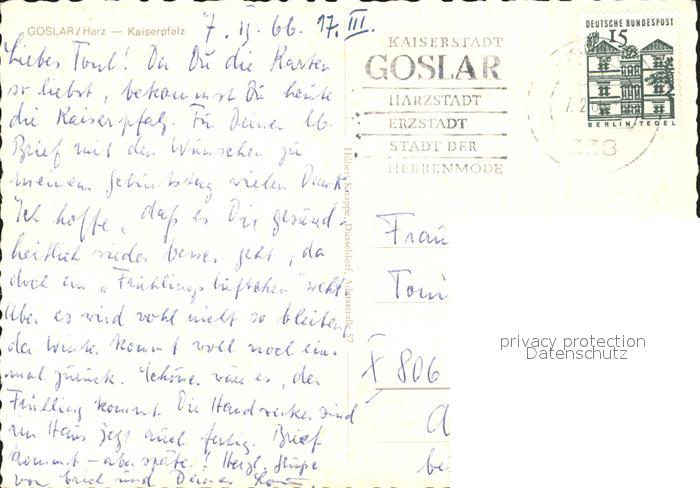 GOSLAR/Harz — Kaiserpfalz
7. II. 66. 17. III.
Liebes Toul! Da Du die Karten
so liebst, bekommst Du heute
die Kaiserpfalz. Für Deinen lb.
Brief mit den Wünschen zu
meinem Geburtstag vielen Dank.
Ich hoffe, daß es Dir gesund-
heitlich wieder besser geht, da
doch ein „Frühlingslüftchen" weht.
Aber es wird wohl nicht so bleiben,
der Winter kommt wohl noch ein-
mal zurück. Schöner wäre es, der
Frühling kommt. Die Handwerker sind
im Haus jetzt auch fertig. Brief
kommt – aber später! Herzl. Grüße
von Erich und Deiner
Huber Knappe, Düsseldorf,
KAISERSTADT
GOSLAR
HARZSTADT
ERZSTADT
STADT DER
HERRENMODE
338
DEUTSCHE BUNDESPOST
15
BERLIN-TEGEL
Frau
Toni
X 806
privacy protection
Datenschutz